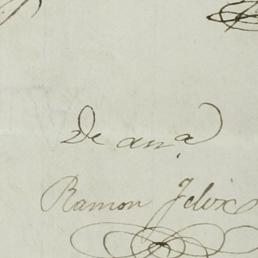 De an.ª
Ramon Felix